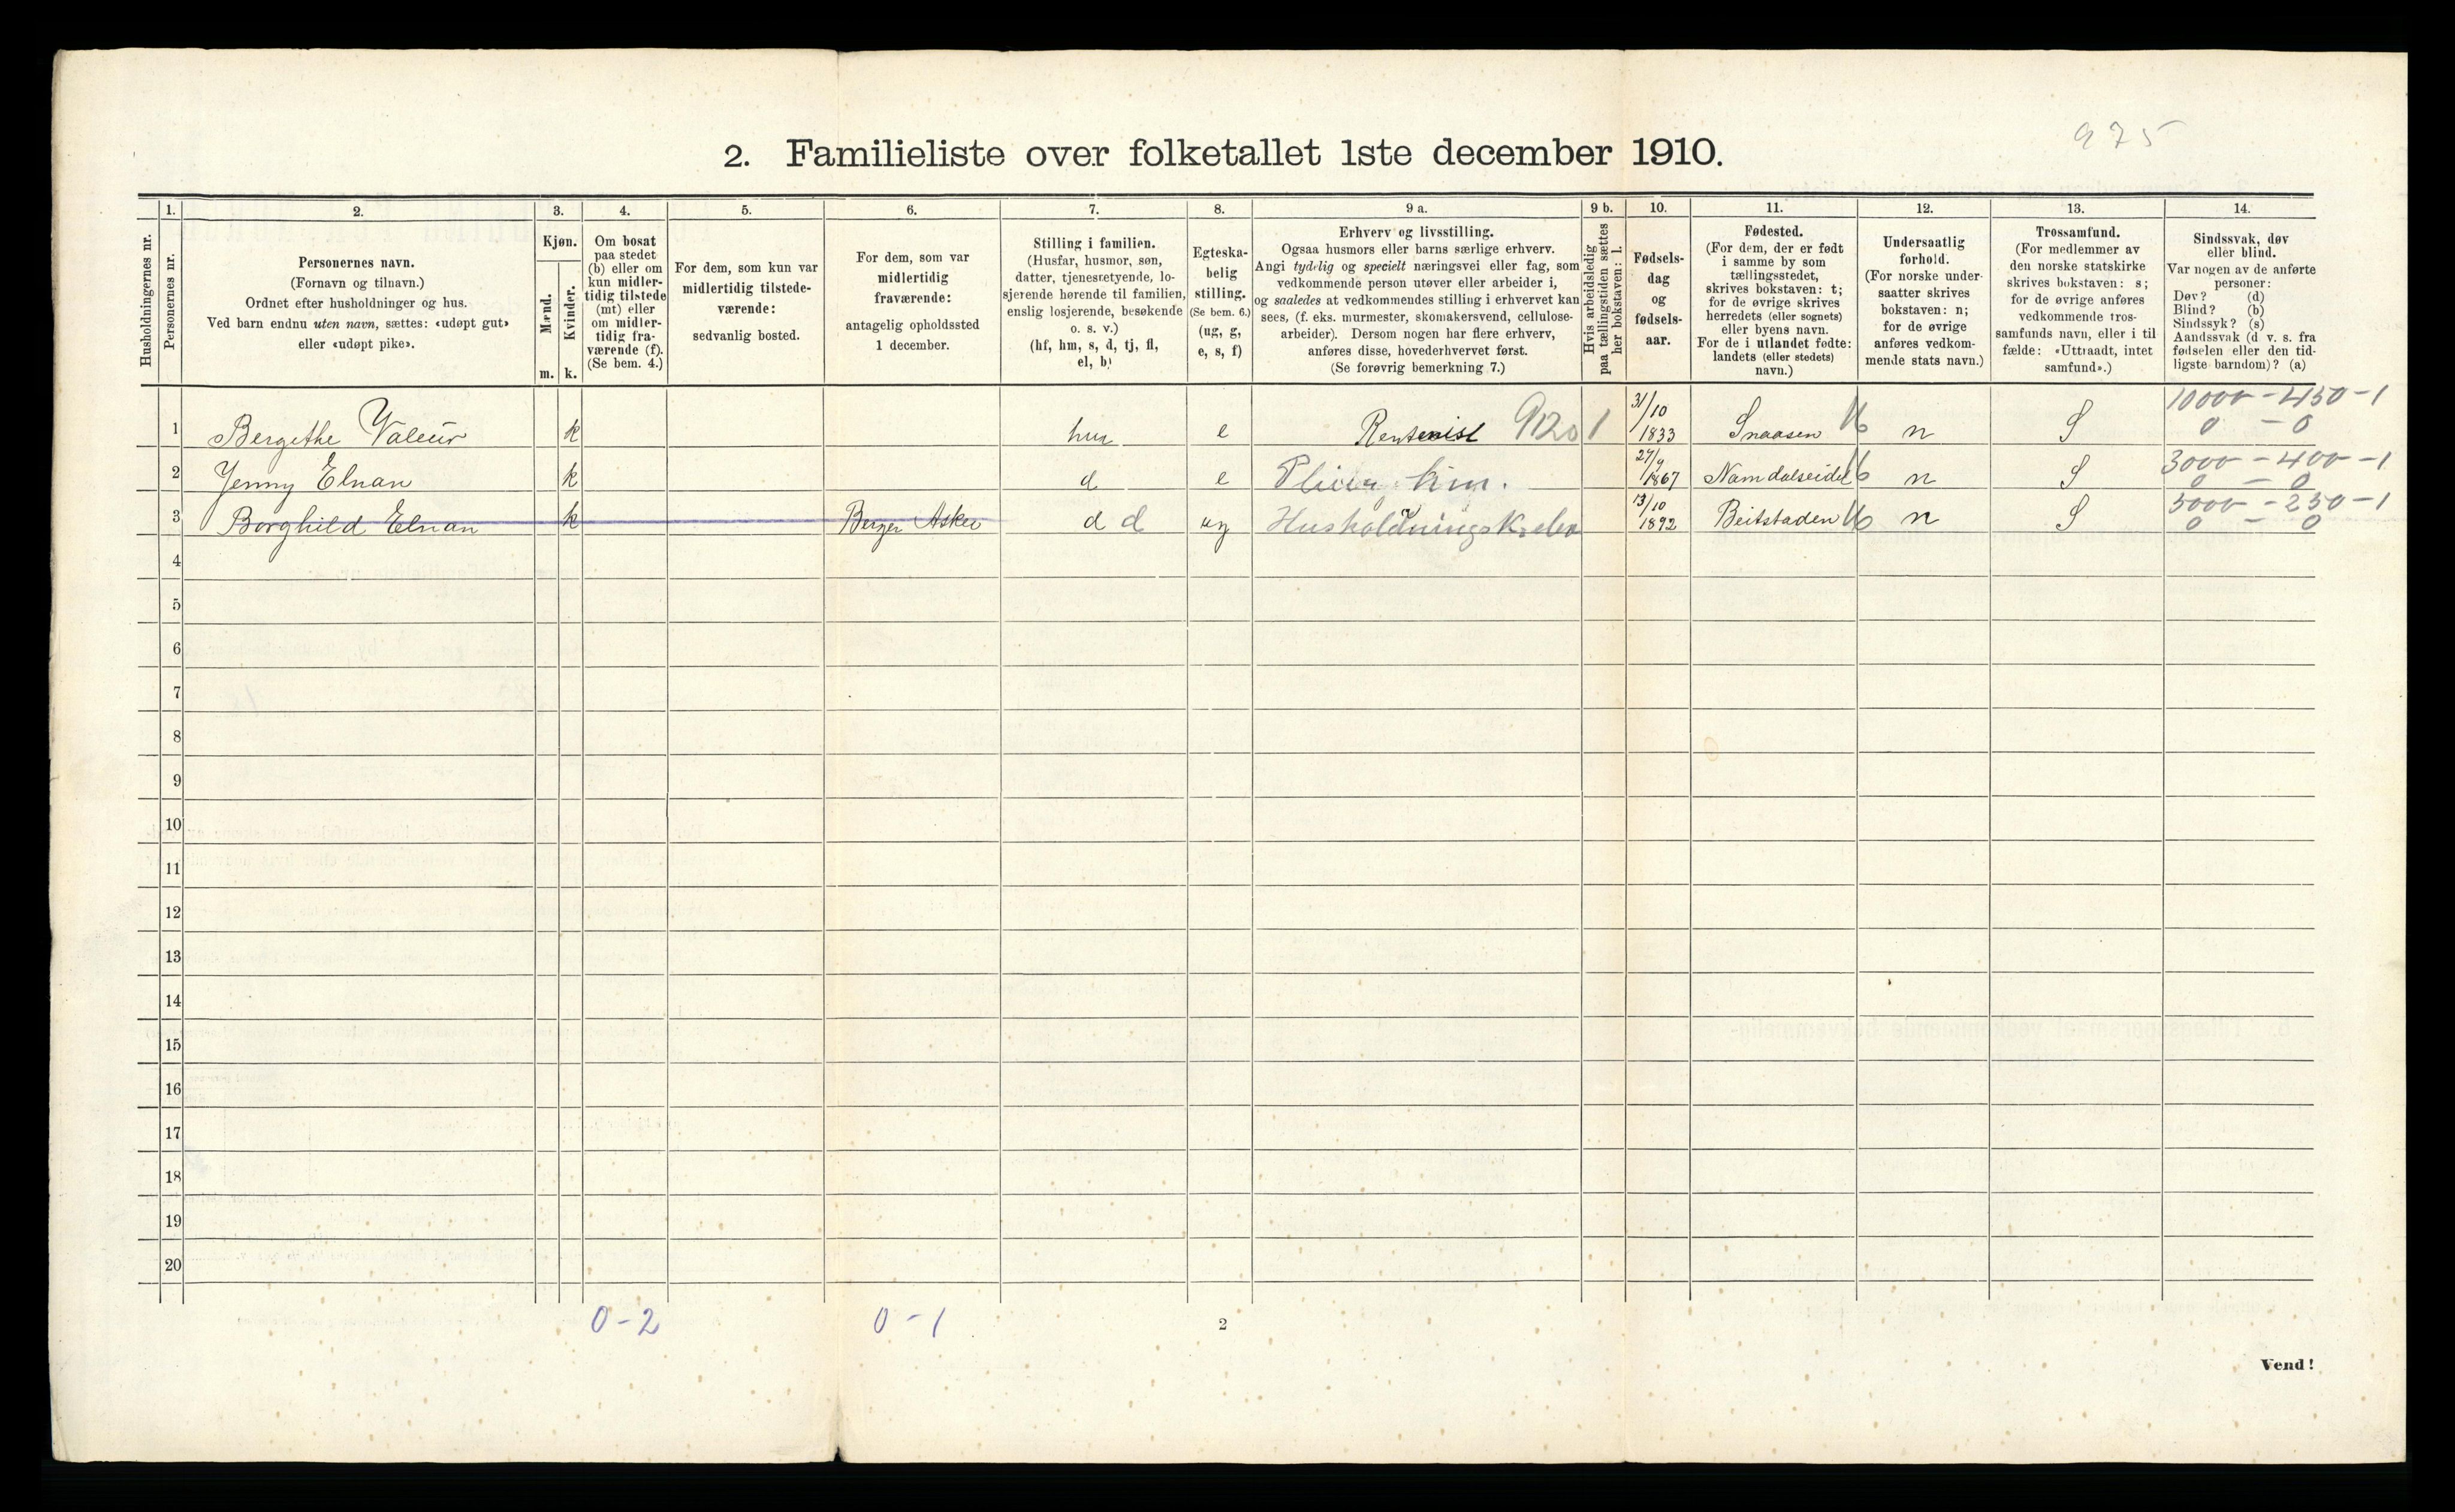 975
2. Familieliste over folketallet 1ste december 1910.
Husholdningernes nr.
1. Personernes nr.
2. Personernes navn.
(Fornavn og tilnavn.)
Ordnet efter husholdninger og hus.
Ved barn endnu uten navn, sættes: «udøpt gut»
eller «udøpt pike».
3. Kjøn.
Mænd. m.
Kvinder. k.
4. Om bosat
paa stedet
(b) eller om
kun midler-
tidig tilstede
(mt) eller
om midler-
tidig fra-
værende (f).
(Se bem. 4.)
5. For dem, som kun var
midlertidig tilstede-
værende:
sedvanlig bosted.
6. For dem, som var
midlertidig
fraværende:
antagelig opholdssted
1 december.
7. Stilling i familien.
(Husfar, husmor, søn,
datter, tjenestetyende, lo-
sjerende hørende til familien,
enslig losjerende, besøkende
o. s. v.)
(hf, hm, s, d, tj, fl,
el, b)
8. Egteska-
belig
stilling.
(Se bem. 6.)
(ug, g,
e, s, f)
9 a. Erhverv og livsstilling.
Ogsaa husmors eller barns særlige erhverv.
Angi tydelig og specielt næringsvei eller fag, som
vedkommende person utøver eller arbeider i,
og saaledes at vedkommendes stilling i erhvervet kan
sees, (f. eks. murmester, skomakersvend, cellulose-
arbeider). Dersom nogen har flere erhverv,
anføres disse, hovederhvervet først.
(Se forøvrig bemerkning 7.)
9 b. Hvis arbeidsledig
paa tællingstiden sættes
her bokstaven: l.
10. Fødsels-
dag
og
fødsels-
aar.
11. Fødested.
(For dem, der er født
i samme by som
tællingsstedet,
skrives bokstaven: t;
for de øvrige skrives
herredets (eller sognets)
eller byens navn.
For de i utlandet fødte:
landets (eller stedets)
navn.)
12. Undersaatlig
forhold.
(For norske under-
saatter skrives
bokstaven: n;
for de øvrige
anføres vedkom-
mende stats navn.)
13. Trossamfund.
(For medlemmer av
den norske statskirke
skrives bokstaven: s;
for de øvrige anføres
vedkommende tros-
samfunds navn, eller i til
fælde: «Uttraadt, intet
samfund».)
14. Sindssvak, døv
eller blind.
Var nogen av de anførte
personer:
Døv? (d)
Blind? (b)
Sindssyk? (s)
Aandssvak (d v. s. fra
fødselen eller den tid-
ligste barndom)? (a)
1 Bergethe Valeur k hm e Rentenist 9120 1 31/10 1833 Snaasen 16 n S 10000 - 450 - 1
0 - 0
2 Jenny Elnan k d e 27/9 1867 Namdalseidet 16 n S 3000 - 400 - 1
0 - 0
3 Borghild Elnan k Berger Asker d d ug 13/10 1892 Beitstaden 16 n S 5000 - 250 - 1
0 - 0
4
5
6
7
8
9
10
11
12
13
14
15
16
17
18
19
20
0 - 2 0 - 1 2
Vend!